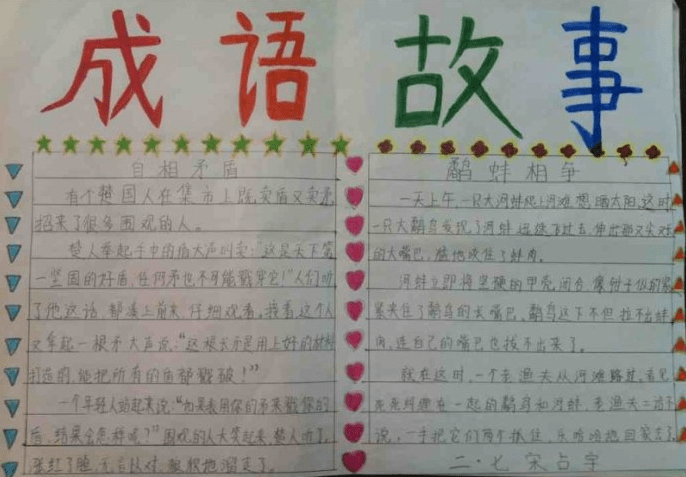 成语故事
自相矛盾
有个楚国人在集市上既卖盾又卖矛
招来了很多围观的人。
楚人举起手中的盾大声叫卖:“这是天下第
一坚固的好盾,任何矛也不可能戳穿它!”人们听
了他这话,都凑上前来,仔细观看。接着,这个人
又拿起一根矛大声说:“这根长矛是用上好的材料
打造的,能把所有的盾都戳破!”
一个年轻人站起来说:“如果我用你的矛来戳你的
盾,结果会怎样呢?”围观的人大笑起来,楚人听了,
张红了脸,无言以对,溜走了。
鹬蚌相争
一天上午,一只大河蚌爬上河滩想晒太阳,这时
一只大鹬鸟发现了河蚌,过去,伸出那又尖又长
的大嘴巴,猛地咬住了蚌肉。
河蚌立即将坚硬的甲壳闭合,像钳子似的紧
紧夹住了鹬鸟的大嘴巴,鹬鸟这下不但拉不出蚌
肉,连自己的嘴巴也拔不出来了。
就在这时,一个老渔夫从河滩路过,看见
在一起的鹬鸟和河蚌,老渔夫二话不
说,一手把它们两个抓住,乐哈哈地回家去了。
二·七宋占宇